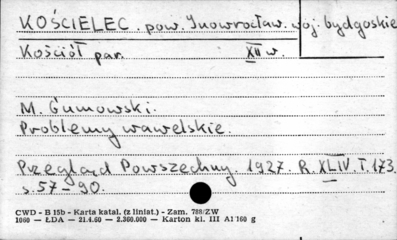 KOŚCIELEC. pow. Inowrocław. woj. bydgoskie
Kościół par. XII w.
M. Gumowski.
Problemy wawelskie.
Przegląd Powszechny. 1927. R. XLIV. T. 173.
s. 57-90.
CWD - B 15b - Karta katal. (z liniat.) - Zam. 788/ZW
1060 — ŁDA — 21.4.60 — 2.360.000 — Karton kl. III A1 160 g